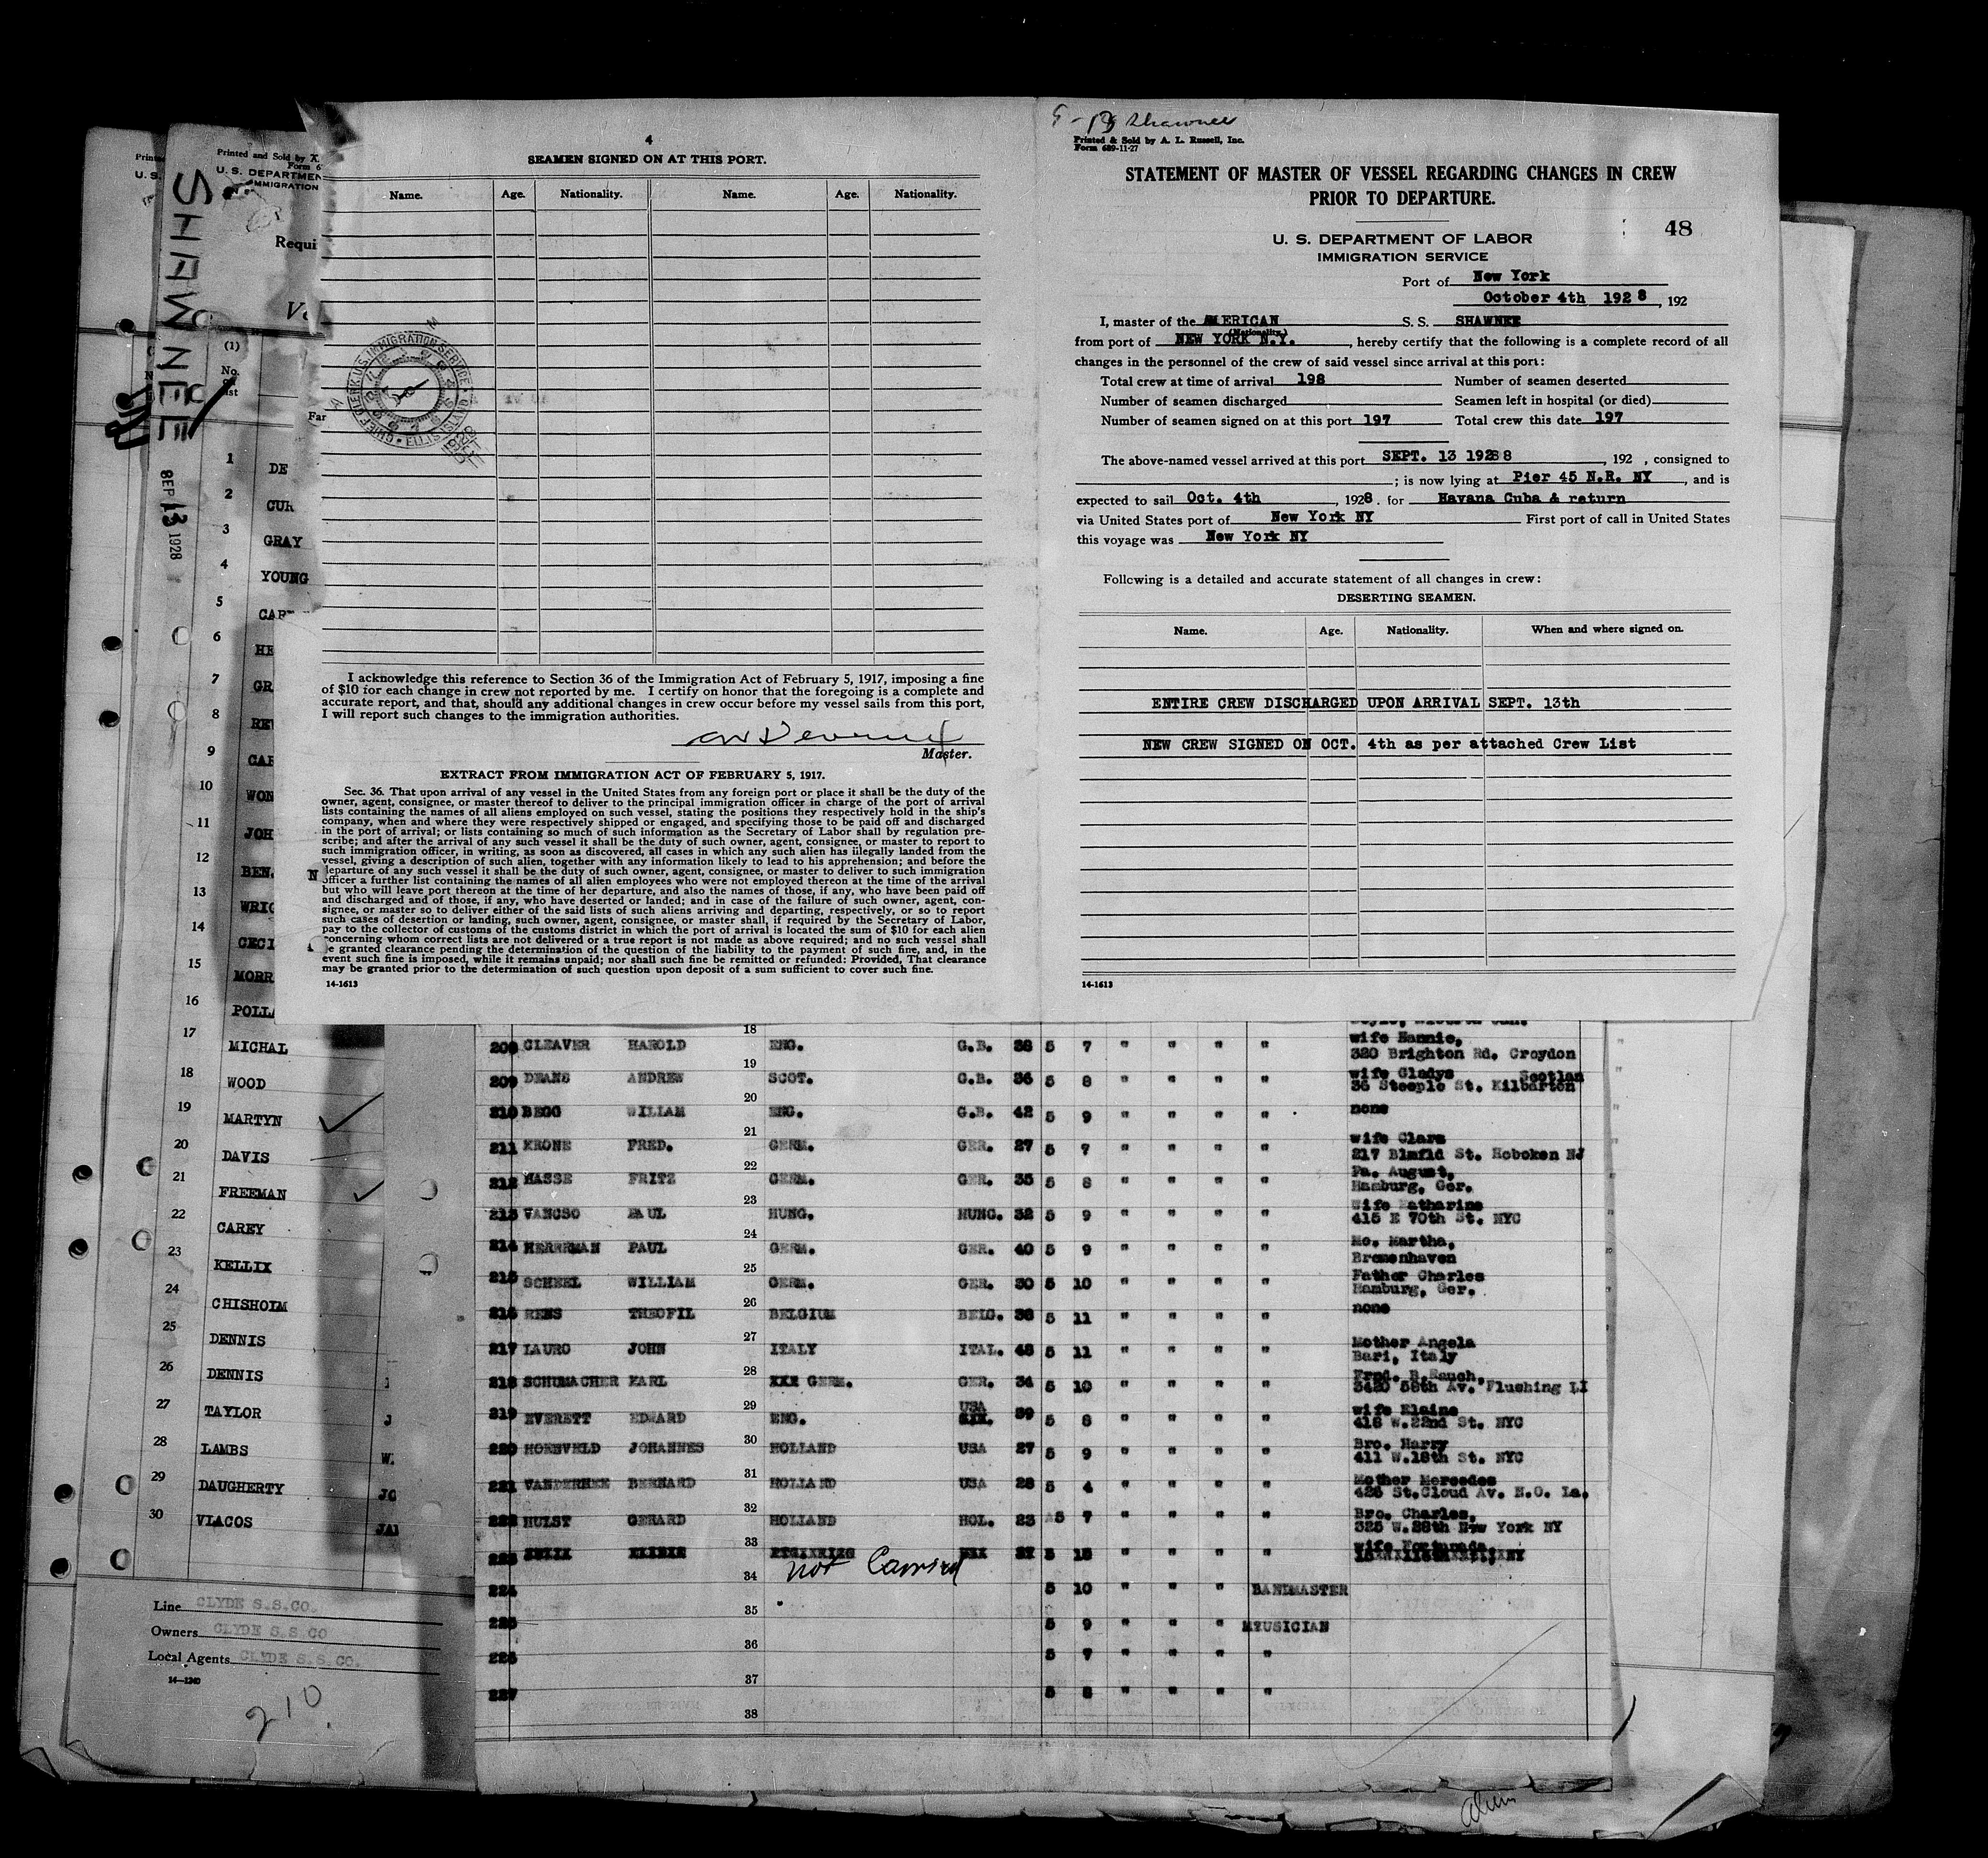 SHAWNEE
SEP 13 1928
Printed and Sold by A.
U. S. DEPARTMEN
IMMIGRATION
Requi
(1)
No.
on
list
Far
1 DE
2 CUR
3 GRAY
4 YOUNG
5 CAR
6 HE
7 GR
8 REV
9 CAR
10 WON
11 JOH
12 BEN
13 WRIG
14 CECI
15 MORR
16 POLLA
17 MICHAL
18 WOOD
19 MARTYN
20 DAVIS
21 FREEMAN
22 CAREY
23 KELLIX
24 CHISHOLM
25 DENNIS
26 DENNIS
27 TAYLOR
28 LAMBS
29 DAUGHERTY
30 VLACOS
Line CLYDE S.S.CO.
Owners CLYDE S.S.CO
Local Agents CLYDE S.S.CO.
14—1240
210
4
SEAMEN SIGNED ON AT THIS PORT.
Name. Age. Nationality. Name. Age. Nationality.
I acknowledge this reference to Section 36 of the Immigration Act of February 5, 1917, imposing a fine
of $10 for each change in crew not reported by me. I certify on honor that the foregoing is a complete and
accurate report, and that, should any additional changes in crew occur before my vessel sails from this port,
I will report such changes to the immigration authorities.
Master.
EXTRACT FROM IMMIGRATION ACT OF FEBRUARY 5, 1917.
Sec. 36. That upon arrival of any vessel in the United States from any foreign port or place it shall be the duty of the
owner, agent, consignee, or master thereof to deliver to the principal immigration officer in charge of the port of arrival
lists containing the names of all aliens employed on such vessel, stating the positions they respectively hold in the ship's
company, when and where they were respectively shipped or engaged, and specifying those to be paid off and discharged
in the port of arrival; or lists containing so much of such information as the Secretary of Labor shall by regulation pre-
scribe; and after the arrival of any such vessel it shall be the duty of such owner, agent, consignee, or master to report to
such immigration officer, in writing, as soon as discovered, all cases in which any such alien has illegally landed from the
vessel, giving a description of such alien, together with any information likely to lead to his apprehension; and before the
departure of any such vessel it shall be the duty of such owner, agent, consignee, or master to deliver to such immigration
officer a further list containing the names of all alien employees who were not employed thereon at the time of the arrival
but who will leave port thereon at the time of her departure, and also the names of those, if any, who have been paid off
and discharged and of those, if any, who have deserted or landed; and in case of the failure of such owner, agent, con-
signee, or master so to deliver either of the said lists of such aliens arriving and departing, respectively, or so to report
such cases of desertion or landing, such owner, agent, consignee, or master shall, if required by the Secretary of Labor,
pay to the collector of customs of the customs district in which the port of arrival is located the sum of $10 for each alien
concerning whom correct lists are not delivered or a true report is not made as above required; and no such vessel shall
be granted clearance pending the determination of the question of the liability to the payment of such fine, and, in the
event such fine is imposed, while it remains unpaid; nor shall such fine be remitted or refunded: Provided, That clearance
may be granted prior to the determination of such question upon deposit of a sum sufficient to cover such fine.
14-1613
Shawnee
Printed & Sold by A. L. Russell, Inc.
Form 689-11-27
STATEMENT OF MASTER OF VESSEL REGARDING CHANGES IN CREW
PRIOR TO DEPARTURE.
48
U. S. DEPARTMENT OF LABOR
IMMIGRATION SERVICE
Port of New York
October 4th 1928, 192
I, master of the AMERICAN S. S. SHAWNEE
(Nationality.)
from port of NEW YORK N.Y., hereby certify that the following is a complete record of all
changes in the personnel of the crew of said vessel since arrival at this port:
Total crew at time of arrival 198 Number of seamen deserted
Number of seamen discharged Seamen left in hospital (or died)
Number of seamen signed on at this port 197 Total crew this date 197
The above-named vessel arrived at this port SEPT. 13 1928 8, 192 , consigned to
; is now lying at Pier 45 N.R. NY, and is
expected to sail Oct. 4th, 1928. for Havana Cuba & return
via United States port of New York NY First port of call in United States
this voyage was New York NY
Following is a detailed and accurate statement of all changes in crew:
DESERTING SEAMEN.
Name. Age. Nationality. When and where signed on.
ENTIRE CREW DISCHARGED UPON ARRIVAL SEPT. 13th
NEW CREW SIGNED ON OCT. 4th as per attached Crew List
14-1613
18
208 CLEAVER HAROLD ENG. G.B. 38 5 7 " " " " wife Nannie,
320 Brighton Rd. Croydon
19
209 DEANS ANDREW SCOT. G.B. 36 5 8 " " " " wife Gladys Scotlan
36 Steeple St. Kilbarton
20
210 BEGG WILIAM ENG. G.B. 42 5 9 " " " " none
21
211 KRONE FRED. GERM. GER. 27 5 7 " " " " wife Clara
217 Blmfld St. Hoboken NJ
22
212 HASSE FRITZ GERM. GER. 35 5 8 " " " " Fa. August,
Hamburg, Ger.
23
213 VANCSO PAUL HUNG. HUNG. 32 5 9 " " " " Wife Katharine
415 E 70th St. NYC
24
214 HERRRMAN PAUL GERM. GER. 40 5 9 " " " " Mo. Martha,
Bremenhaven
25
215 SCHEEL WILLIAM GERM. GER. 30 5 10 " " " " Father Charles
Hamburg, Ger.
26
216 RENS THEOFIL BELGIUM BELG. 38 5 11 " " " " none
27
217 LAURO JOHN ITALY ITAL. 48 5 11 " " " " Mother Angela
Bari, Italy
28
218 SCHUMACHER KARL XXX GERM. GER. 34 5 10 " " " " Fred. B.Rauch,
3420 58th Av. Flushing LI
29
219 EVERETT EDWARD ENG. USA 39 5 8 " " " " wife Elaine
418 W.22nd St. NYC
30
220 HOENVELD JOHANNES HOLLAND USA 27 5 9 " " " " Bro. Harry
411 W.18th St. NYC
31
221 VANDERHEE BERNARD HOLLAND USA 28 5 4 " " " " Mother Mercedes
428 St.Cloud Av. N.O. La.
32
222 HULST GERARD HOLLAND HOL. 23 5 7 " " " " Bro. Charles,
325 W.28th New York NY
33
223 " " " " wife
not Carried
34
224 5 10 " " " BANDMASTER
35
225 5 9 " " " MUSICIAN
36
226 5 7 " " " "
37
227 5 8 " " " "
38